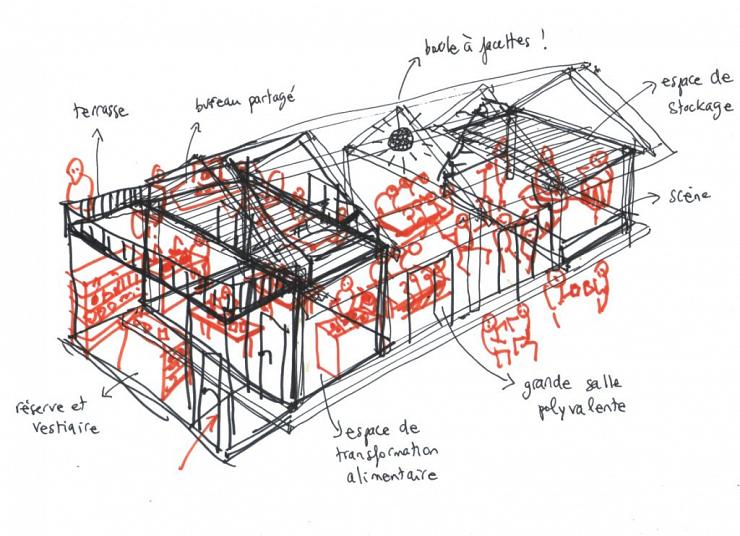 boule à facettes !
espace de
stockage
bureau partagé
terrasse
scène
grande salle
polyvalente
réserve et
vestiaire
espace de
transformation
alimentaire